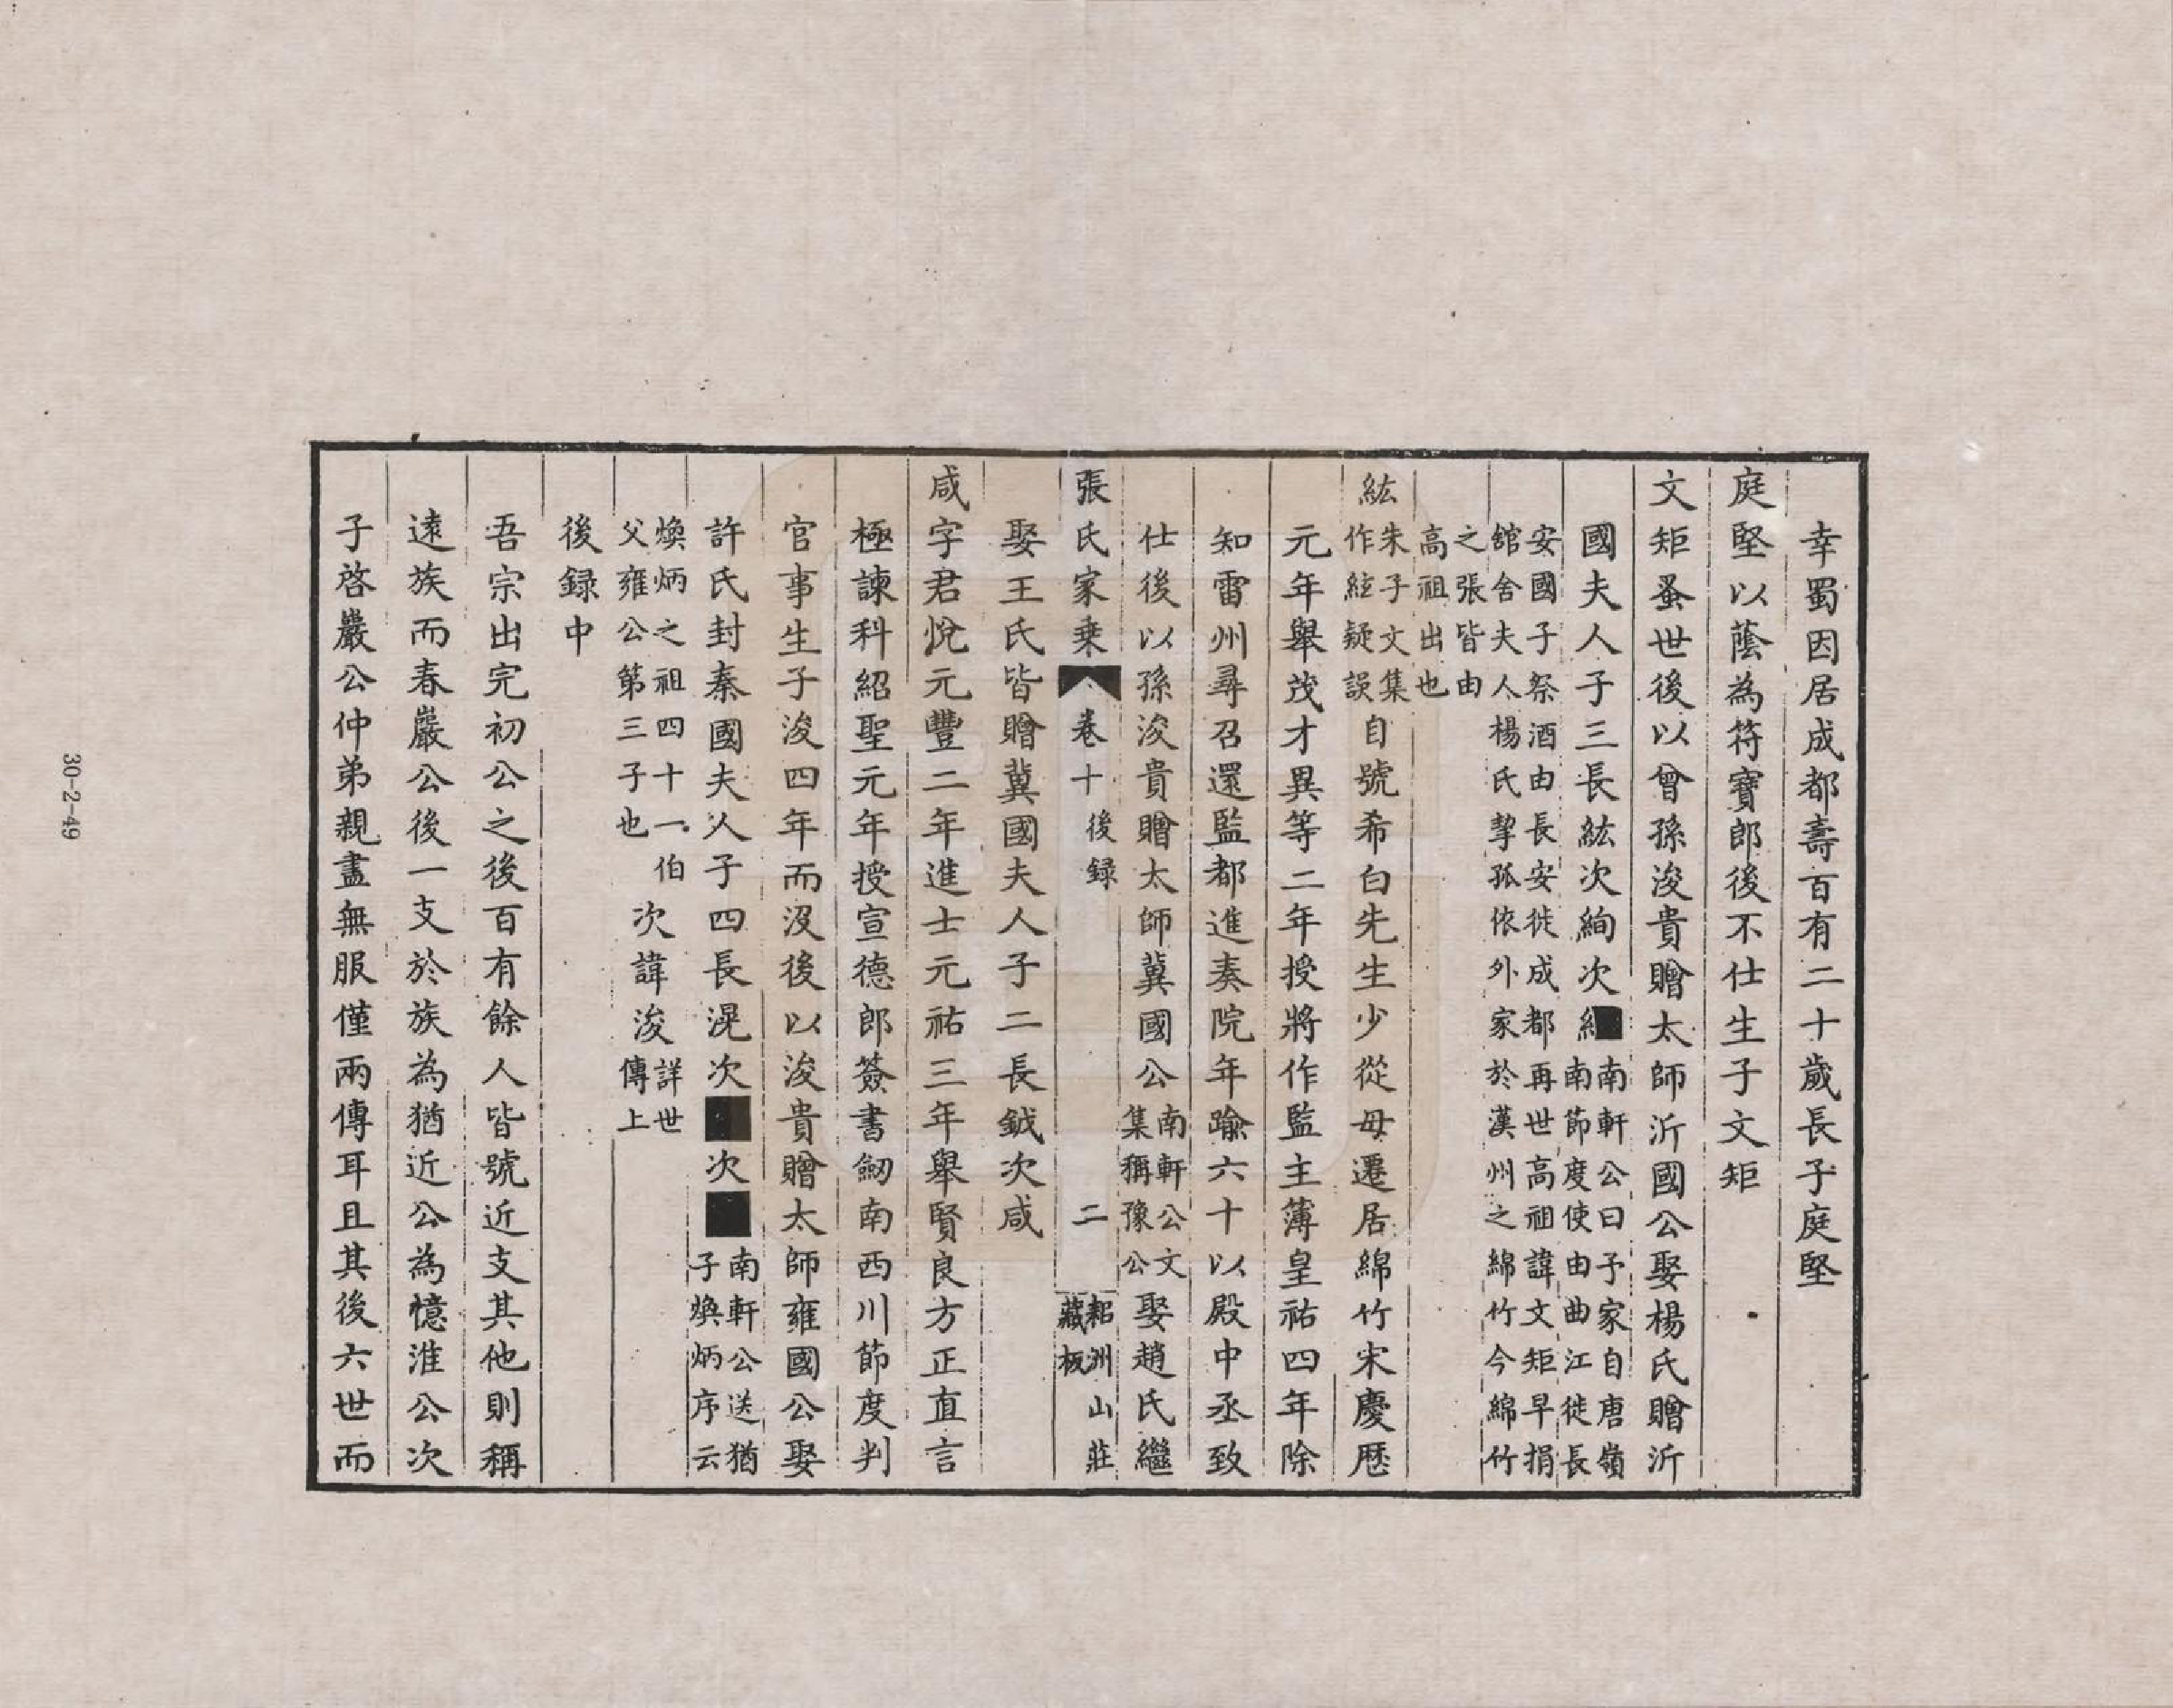 幸蜀因居成都壽百有二十歲長子庭堅
庭堅以蔭為符寶郎後不仕生子文矩
文矩蚤世後以曾孫浚貴贈太師沂國公娶楊氏贈沂
國夫人子三長紘次絢次
南軒公曰予家自唐嶺
南節度使由曲江徙長
安國子祭酒由長安徙成都再世高祖諱文矩早捐
舘舍夫人楊氏挈孤依外家於漢州之綿竹今綿竹
之張皆由
高祖出也
紘
朱子文集
作絃疑誤
自號希白先生少從母遷居綿竹宋慶歷
元年舉茂才異等二年授將作監主簿皇祐四年除
知雷州尋召還監都進奏院年踰六十以殿中丞致
仕後以孫浚貴贈太師冀國公
南軒公文
集稱豫公
娶趙氏繼
張氏家乗 卷十 後録 二
耜洲山莊
藏板
娶王氏皆贈冀國夫人子二長鉞次咸
咸字君悅元豐二年進士元祐三年舉賢良方正直言
極諫科紹聖元年授宣德郎簽書劒南西川節度判
官事生子浚四年而沒後以浚貴贈太師雍國公娶
許氏封秦國夫人子四長滉次■次■
南軒公送猶
子煥炳序云
煥炳之祖四十一伯
父雍公第三子也
次諱浚
詳世
傳上
後録中
吾宗出完初公之後百有餘人皆號近支其他則稱
逺族而春巖公後一支於族為猶近公為憶淮公次
子啓巖公仲弟親盡無服僅兩傳耳且其後六世而
30-2-49